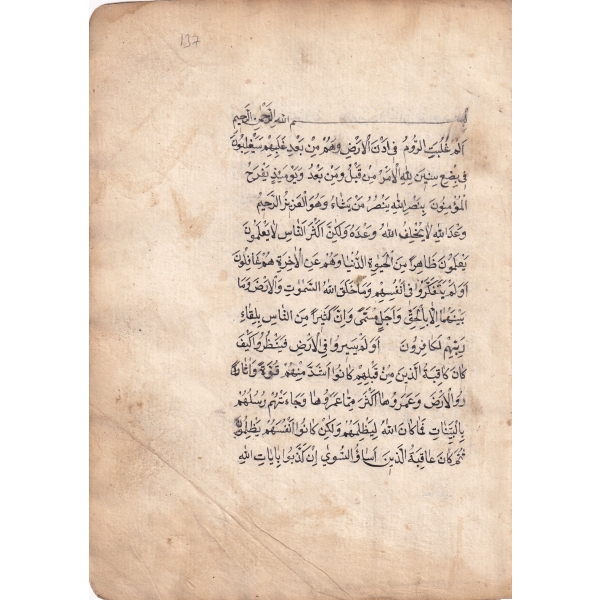 137
بسم الله الرحمن الرحيم
الم غلبت الروم في ادنى الارض وهم من بعد غلبهم سيغلبون
في بضع سنين لله الامر من قبل ومن بعد ويومئذ يفرح
المؤمنون بنصر الله ينصر من يشاء وهو العزيز الرحيم
وعد الله لا يخلف الله وعده ولكن اكثر الناس لا يعلمون
يعلمون ظاهرا من الحيوة الدنيا وهم عن الاخرة هم غافلون
اولم يتفكروا في انفسهم وما خلق الله السموت والارض وما
بينهما الا بالحق واجل مسمى وان كثيرا من الناس بلقاء
ربهم لكافرون اولم يسيروا في الارض فينظروا كيف
كان عاقبة الذين من قبلهم كانوا اشد منهم قوة واثار
روا الارض وعمروها اكثر مما عمروها وجاءتهم رسلهم
بالبينات فما كان الله ليظلمهم ولكن كانوا انفسهم يظلمون
ثم كان عاقبة الذين اساؤ السوى ان كذبوا بايات الله